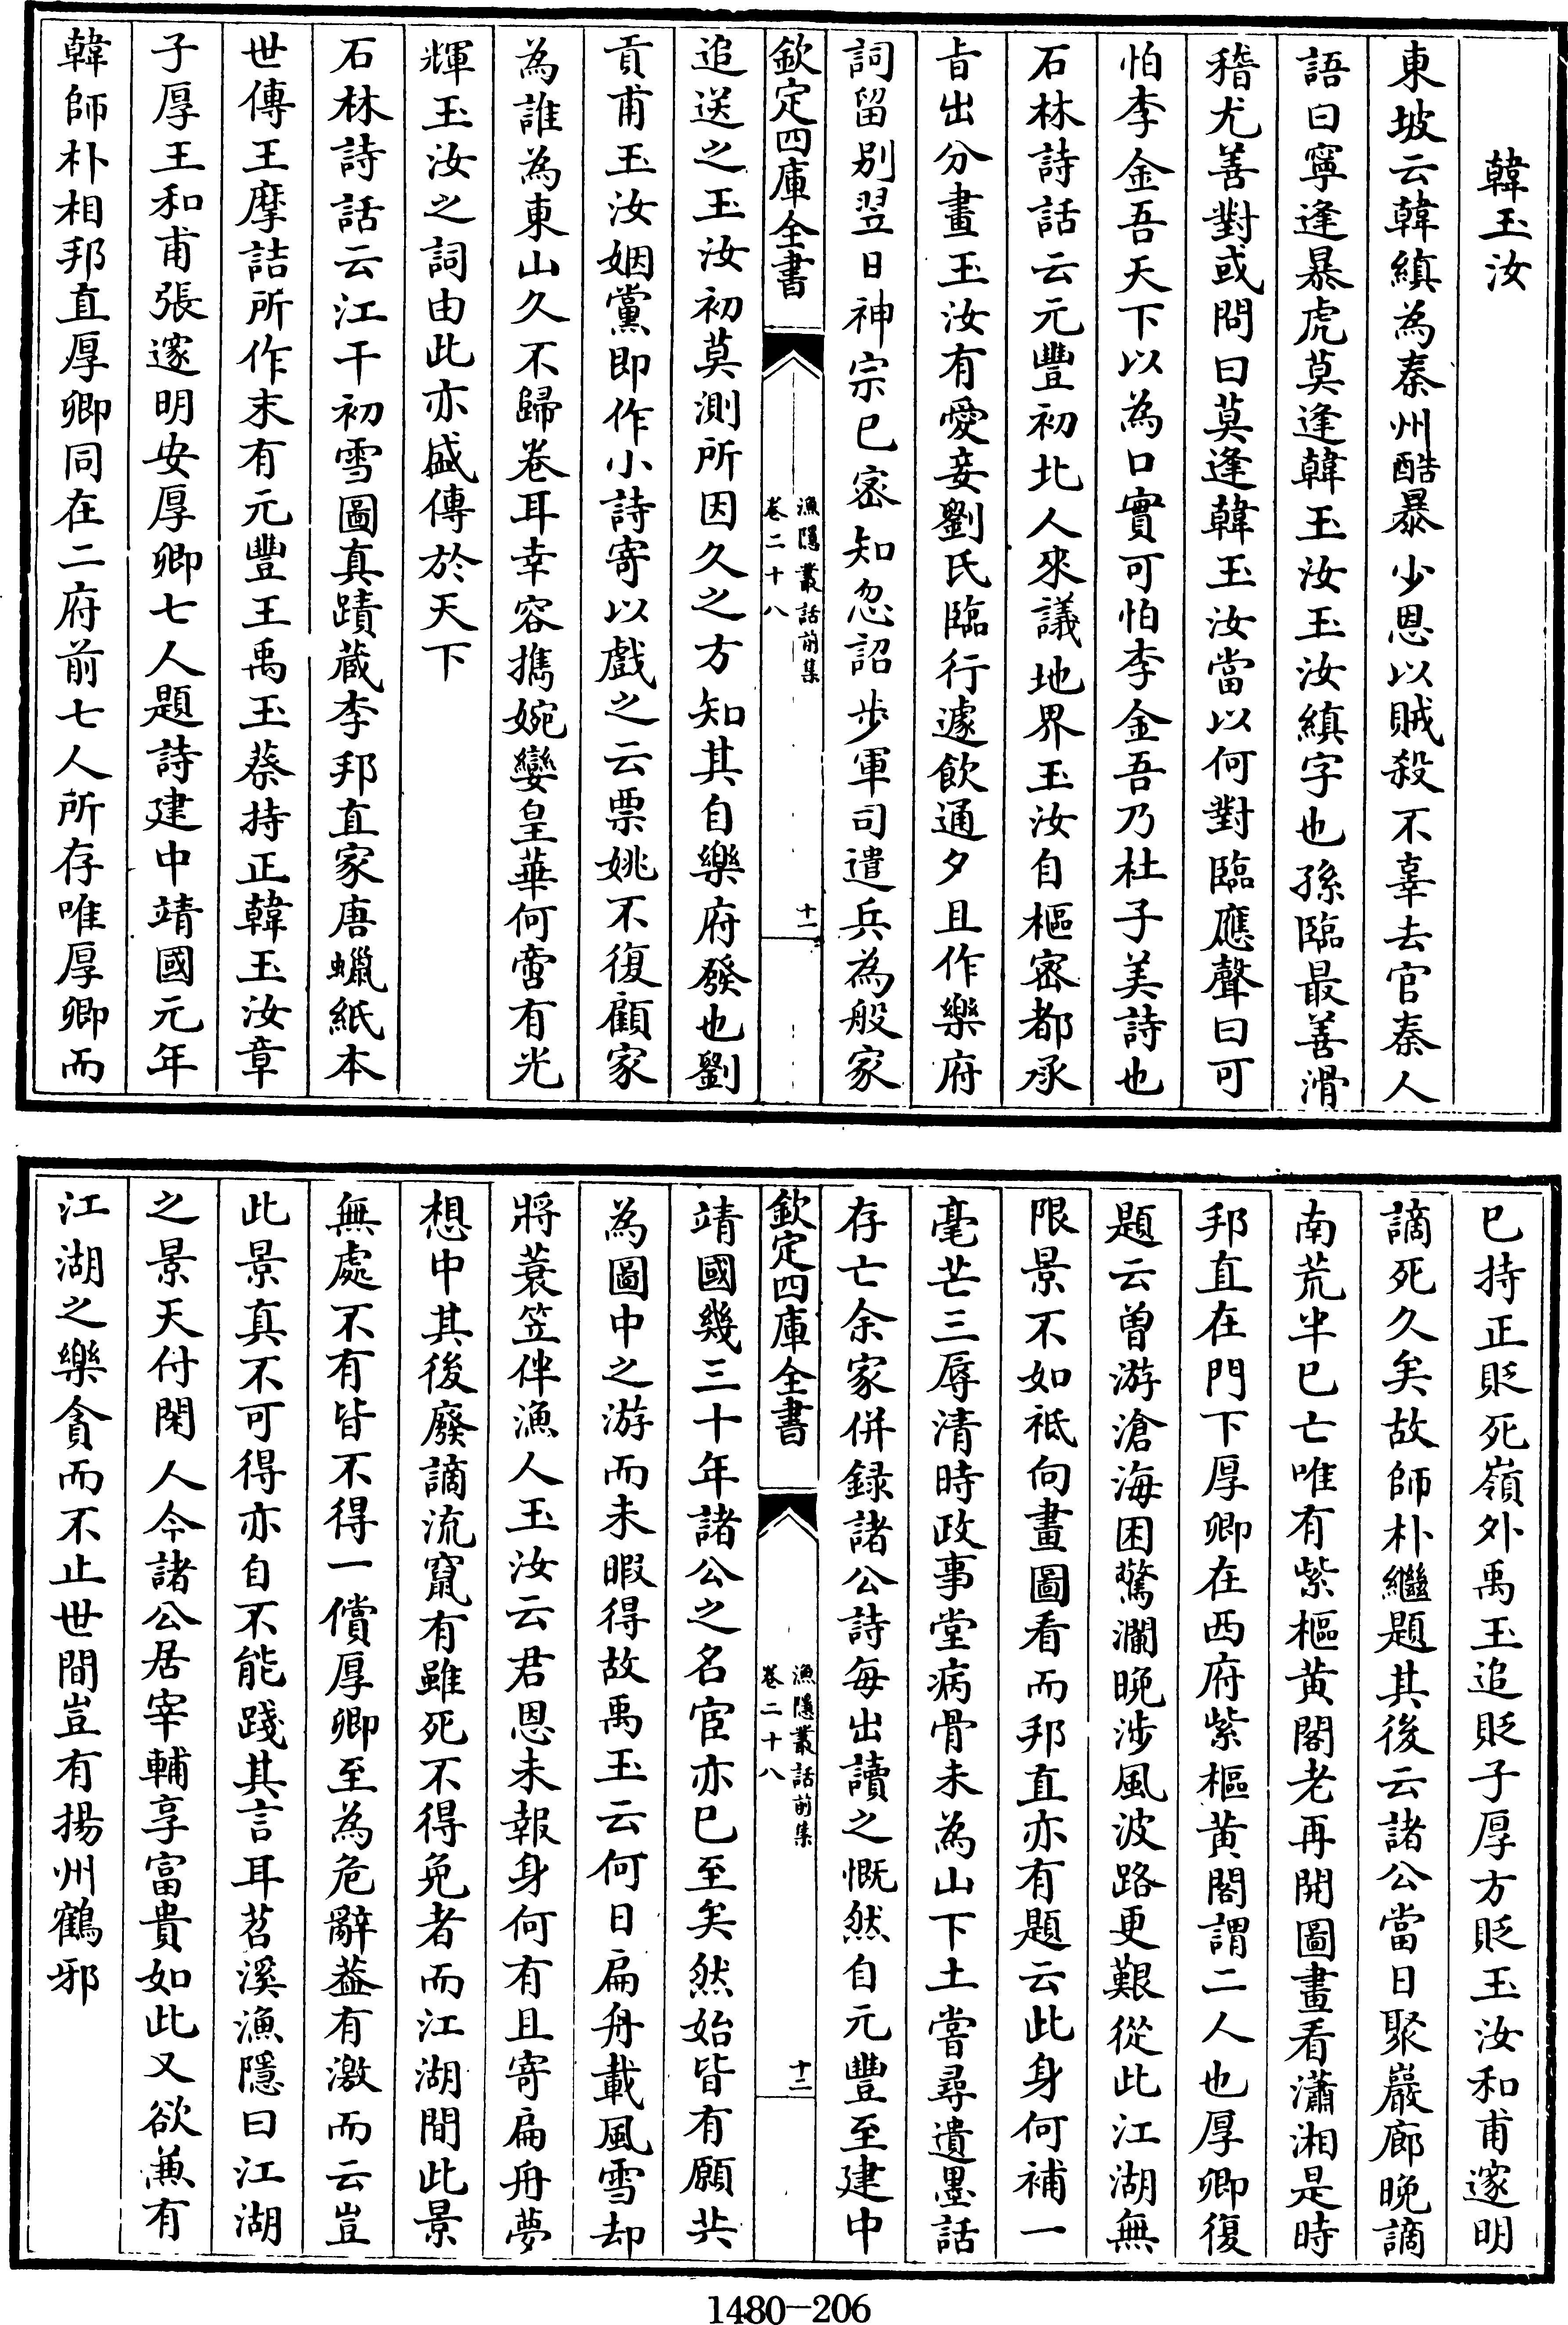 韓玉汝
東坡云韓縝為秦州酷暴少恩以賊殺不辜去官秦人
語曰寧逢暴虎莫逢韓玉汝玉汝縝字也孫臨最善滑
稽尤善對或問曰莫逢韓玉汝當以何對臨應聲曰可
怕李金吾天下以為口實可怕李金吾乃杜子美詩也
石林詩話云元豐初北人來議地界玉汝自樞密都承
旨出分畫玉汝有愛妾劉氏臨行遽飲通夕且作樂府
詞留别翌日神宗已密知忽詔步軍司遣兵為般家
欽定四庫全書
漁隱叢話前集
卷二十八
十一
追送之玉汝初莫測所因久之方知其自樂府發也劉
貢甫玉汝姻黨即作小詩寄以戲之云票姚不復顧家
為誰為東山久不歸卷耳幸容攜婉孌皇華何啻有光
輝玉汝之詞由此亦盛傳於天下
石林詩話云江干初雪圖真蹟藏李邦直家唐蠟紙本
世傳王摩詰所作末有元豐王禹玉蔡持正韓玉汝章
子厚王和甫張邃明安厚卿七人題詩建中靖國元年
韓師朴相邦直厚卿同在二府前七人所存唯厚卿而
已持正貶死嶺外禹玉追貶子厚方貶玉汝和甫邃明
謫死久矣故師朴繼題其後云諸公當日聚巖廊晚謫
南荒半已亡唯有紫樞黃閣老再開圖畫看瀟湘是時
邦直在門下厚卿在西府紫樞黃閣謂二人也厚卿復
題云曾游滄海困驚瀾晚涉風波路更艱從此江湖無
限景不如祗向畫圖看而邦直亦有題云此身何補一
毫芒三辱清時政事堂病骨未為山下土嘗尋遺墨話
存亡余家併録諸公詩每出讀之慨然自元豐至建中
欽定四庫全書
漁隱叢話前集
卷二十八
十二
靖國幾三十年諸公之名宦亦已至矣然始皆有願共
為圖中之游而未暇得故禹玉云何日扁舟載風雪却
將蓑笠伴漁人玉汝云君恩未報身何有且寄扁舟夢
想中其後廢謫流竄有雖死不得免者而江湖間此景
無處不有皆不得一償厚卿至為危辭葢有激而云豈
此景真不可得亦自不能踐其言耳苕溪漁隱曰江湖
之景天付閑人今諸公居宰輔享富貴如此又欲兼有
江湖之樂貪而不止世間豈有揚州鶴邪
1480—206